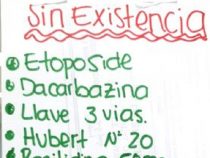 Sin Existencia
Etoposide
Dacarbazina
Llave 3 vias.
Hubert Nº 20